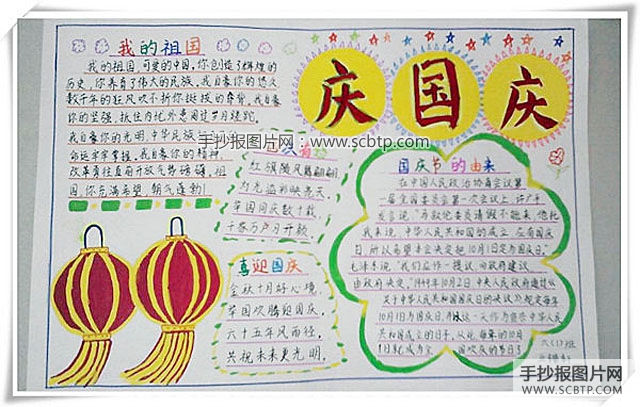 我的祖国
我的祖国,可爱的中国,你创造了辉煌的
历史,你养育了伟大的民族。我自豪你的悠久
数千年的狂风吹不折你挺拔的脊背,我自豪
你的坚强,抵住内忧外患闯过岁月蹉跎。
我自豪你的光明,中华民族
命运牢牢掌握。我自豪你的精神,
改革勇往直前开放气势磅礴,祖
国,你充满希望,朝气蓬勃!
庆国庆
手抄报图片网 www.scbtp.com
红旗随风飘翩翩
灯光溢彩映春天
举国同庆数十载
喜迎国庆
金秋十月好心境,
举国欢腾迎国庆,
六十五年风雨径,
共祝未来更光明。
国庆节的由来
在中国人民政治协商会议第
一届全国委员会第一次会议上,许广平
发言说,“马叙伦委员请假不能来,他托
我来说,中华人民共和国的成立,应有国庆
日,所以希望本会决定把10月1日定为国庆日。”
毛泽东说,“我们应作一提议,向政府建议,
由政府决定。”1949年10月2日,中央人民政府通过《
关于中华人民共和国国庆日的决议》,规定每年
10月1日为国庆日,并以这一天作为宣告中华人民
共和国成立的日子。从此,每年的10月
1日就成为全国欢庆的节日了
六(1)班
手抄报图片网
WWW.SCBTP.COM